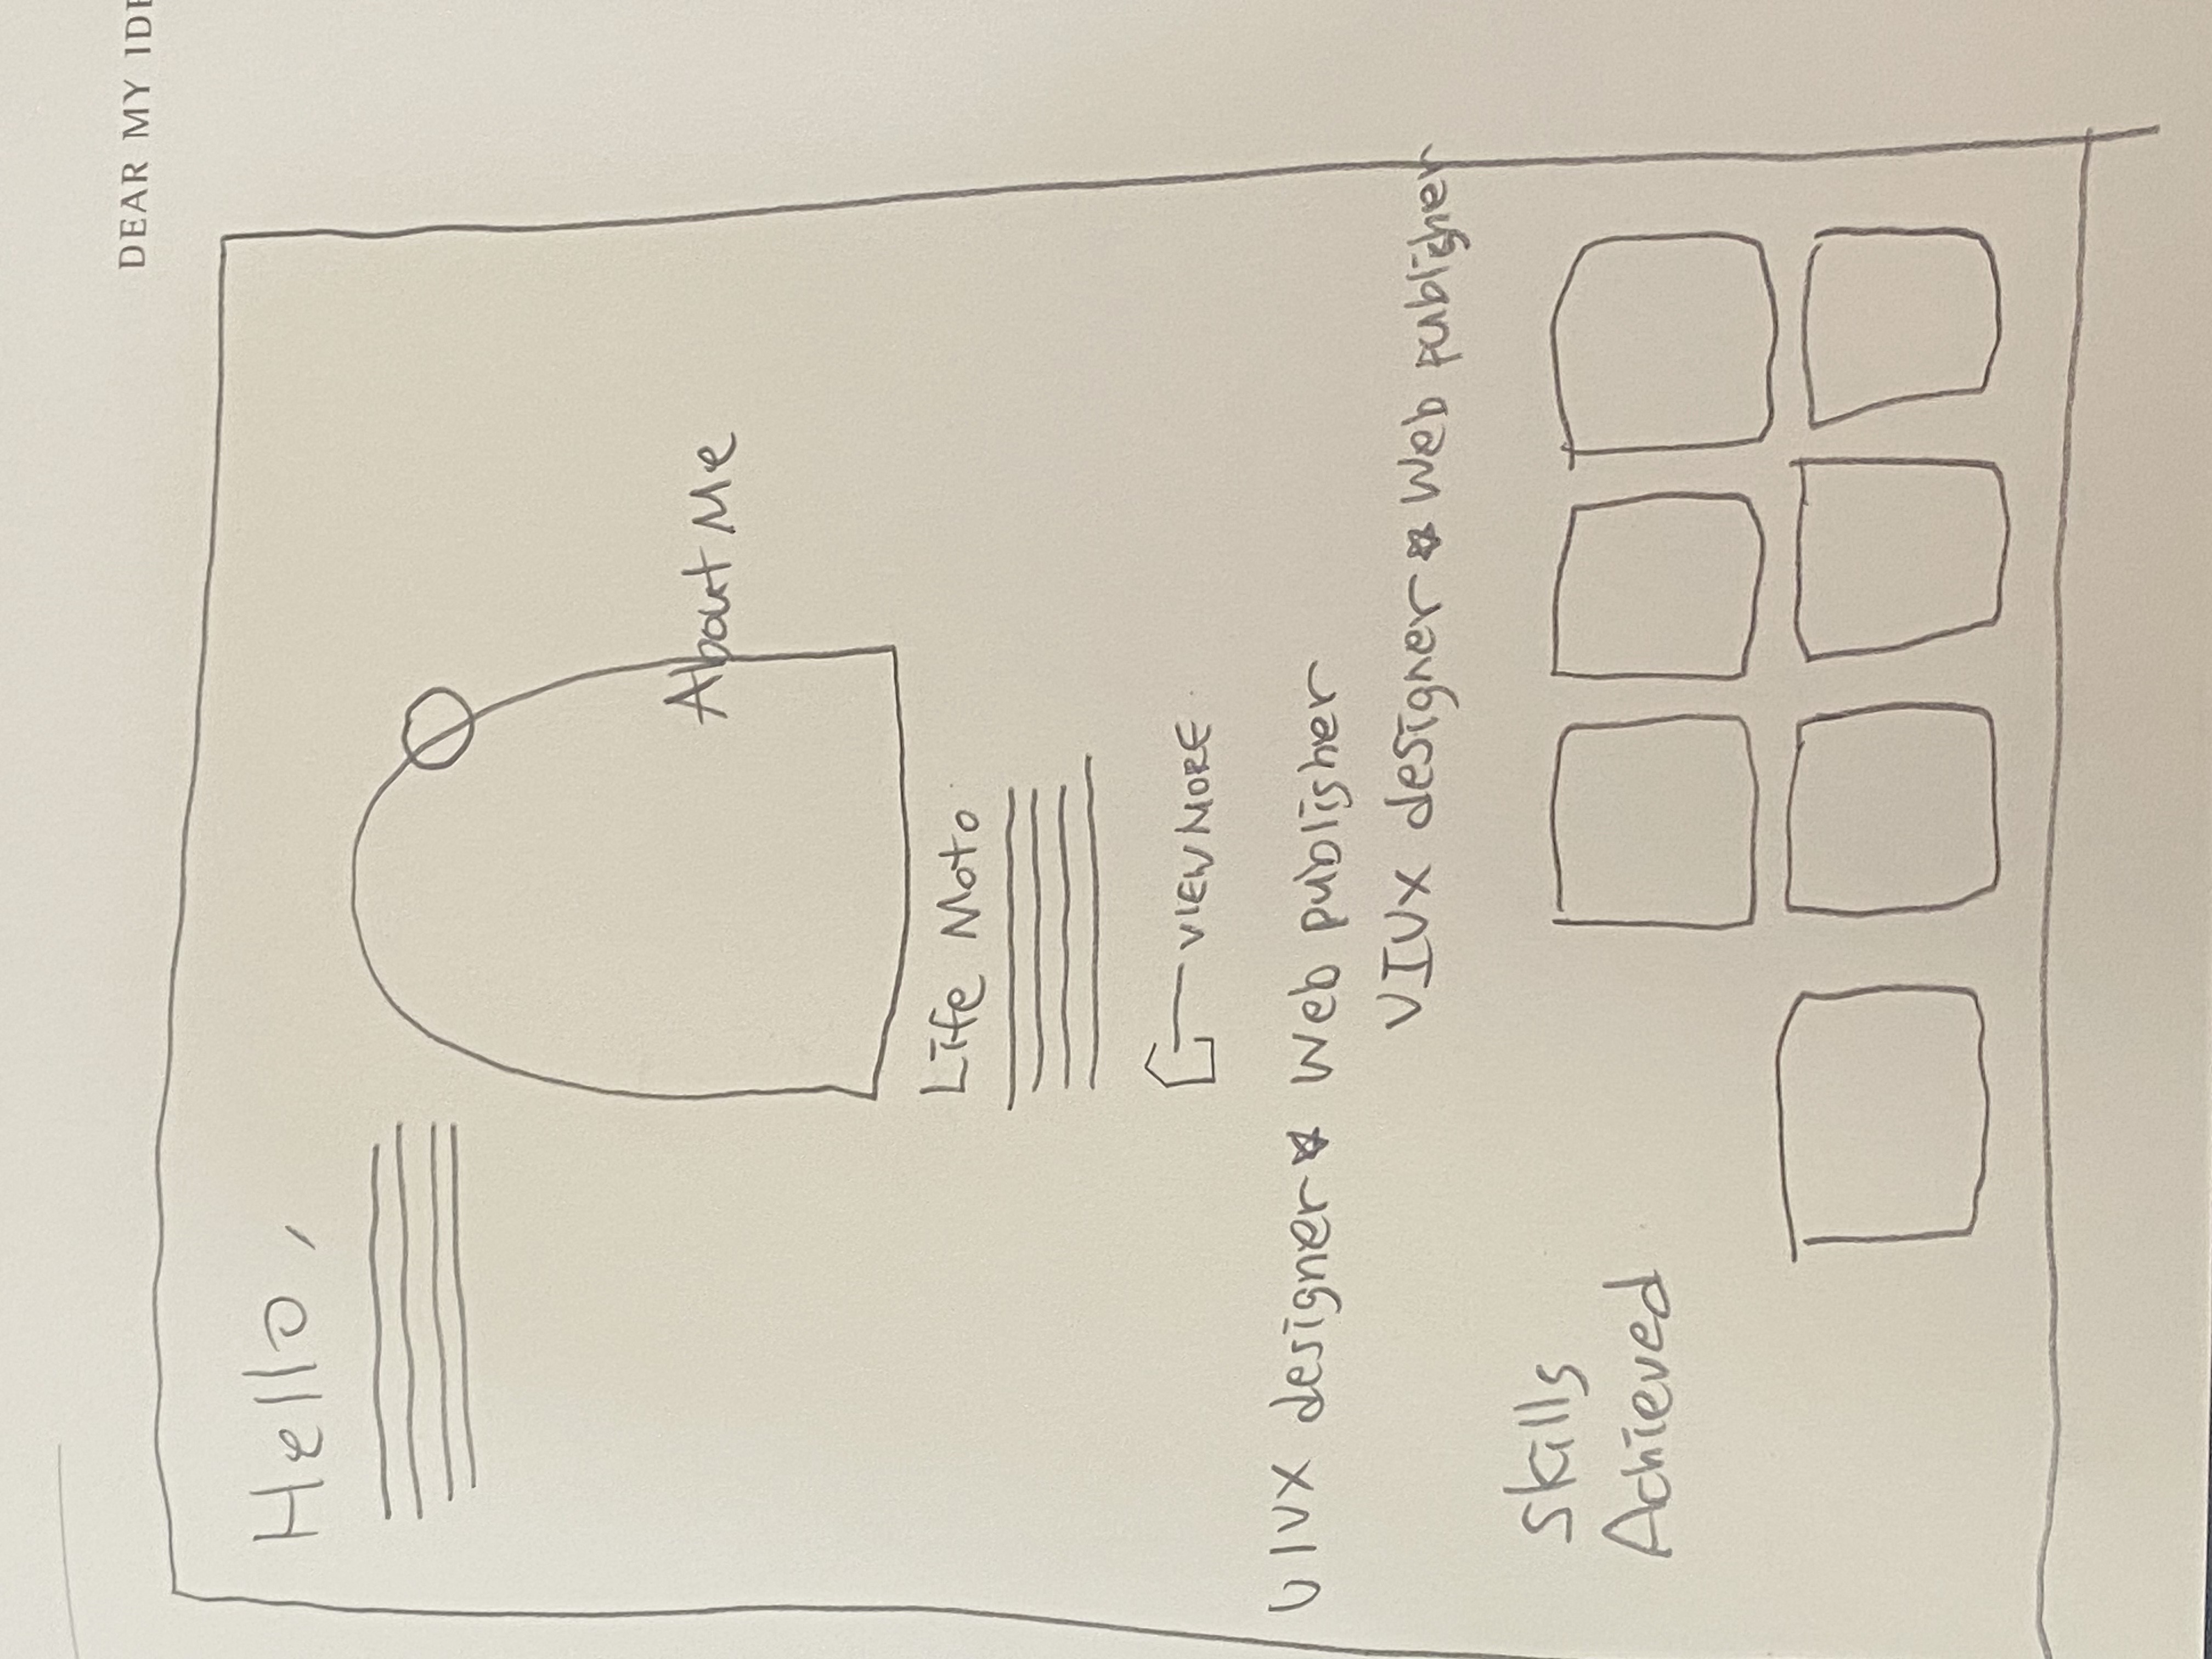 DEAR MY IDE
Hello,
About Me
Life Moto
VIEW MORE
UIUX designer ☆ Web publisher
UIUX designer ☆ Web publisher
Skills
Achieved